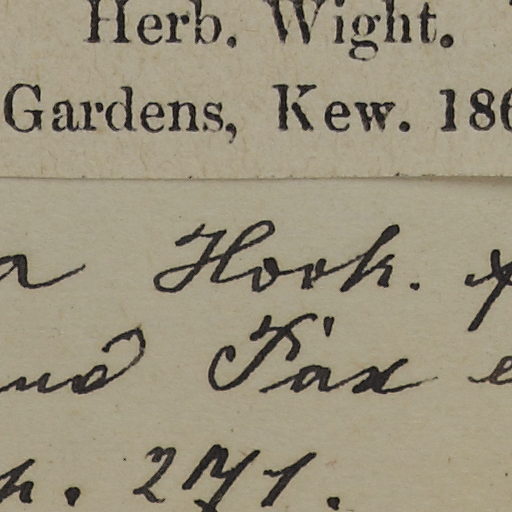 Herb. Wight.
Gardens, Kew. 186
a Hook. f
und Pax e
h. 271.